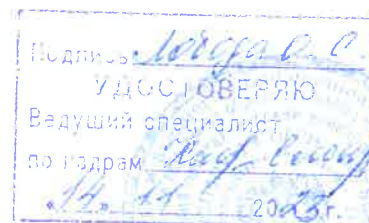 Подпись Логода О. С.
УДОСТОВЕРЯЮ
Ведущий специалист
по кадрам
"14" 11 2023 г.